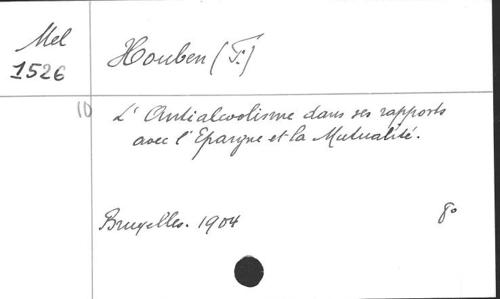 Mel
1526
Houben (F.)
10
L'Antialcoolisme dans ses rapports
avec l'Epargne et la Mutualité.
Bruxelles. 1904
8o